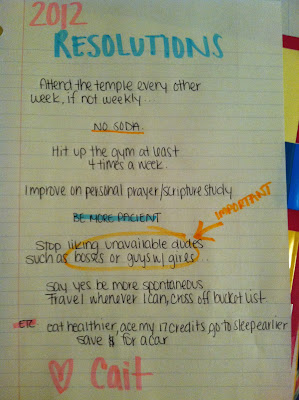 2012
RESOLUTIONS
Attend the temple every other
week, if not weekly...
NO SODA.
Hit up the gym at least
4 times a week.
Improve on personal prayer/scripture study
BE MORE PACIENT
IMPORTANT
Stop liking unavailable dudes
such as bosses or guys w/ girls...
Say yes be more spontaneous
Travel whenever I can, cross off bucket list
ETC eat healthier, ace my 17 credits go to sleep earlier
save $ for a car
♡ Cait